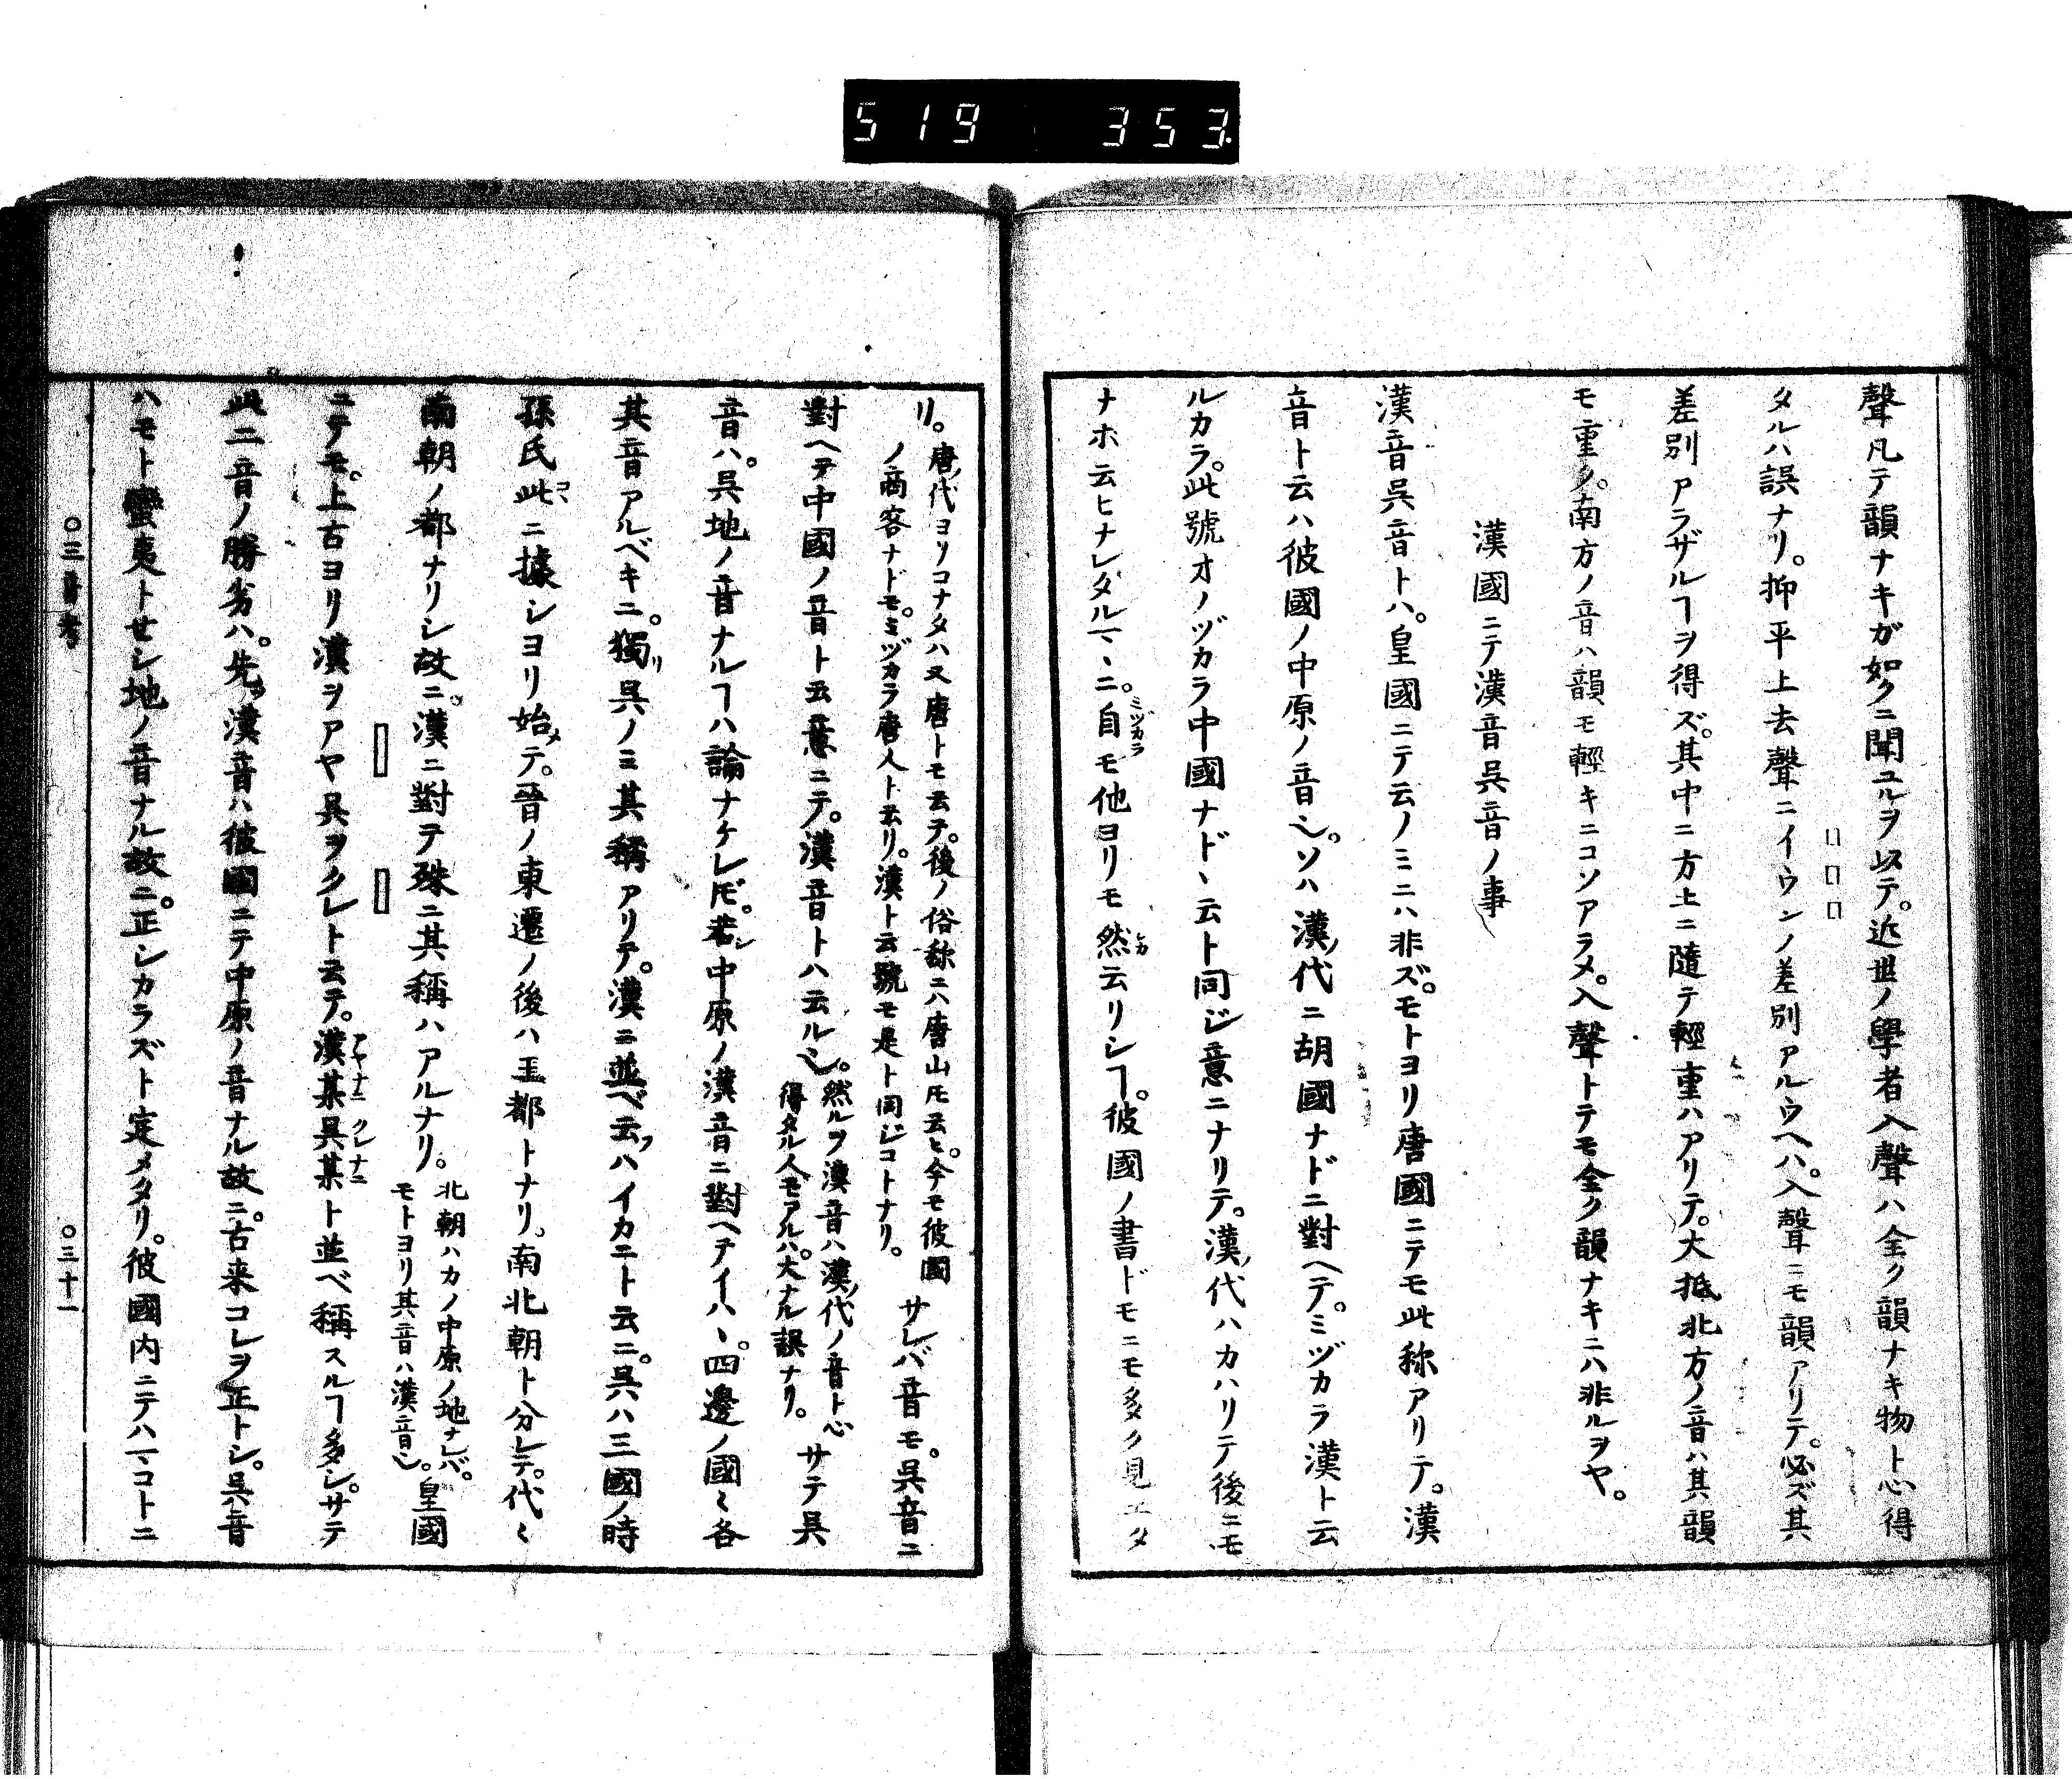 519 353
聲凡テ韻ナキガ如クニ聞ユルヲ以テ。近世ノ學者入聲ハ全ク韻ナキ物ト心得
タルハ誤ナリ。抑平上去聲ニイウンノ差別アルウヘハ。入聲ニモ韻アリテ。必ズ其
差別アラザルヿヲ得ズ。其中ニ方土ニ隨テ輕重ハアリテ。大抵北方ノ音ハ其韻
モ重ク。南方ノ音ハ韻モ輕キニコソアラメ。入聲トテモ全ク韻ナキニハ非ルヲヤ。
漢國ニテ漢音呉音ノ事
漢音呉音トハ。皇國ニテ云ノミニハ非ズ。モトヨリ唐國ニテモ此称アリテ。漢
音ト云ハ彼國ノ中原ノ音也。ソハ漢ノ代ニ胡國ナドニ對ヘテ。ミヅカラ漢ト云
ルカラ。此號オノヅカラ中國ナドヽ云ト同ジ意ニナリテ。漢ノ代ハカハリテ後ニモ
ナホ云ヒナレタルマヽニ。自ミヅカラモ他ヨリモ然シカ云リシヿ。彼國ノ書ドモニモ多ク見エタ
リ。唐ノ代ヨリコナタハ又唐トモ云テ。後ノ俗称ニハ唐山トモ云ヒ。今モ彼國
ノ商客ナドモ。ミヅカラ唐人ト云リ。漢ト云號モ是ト同ジコトナリ。
サレバ音モ。呉音ニ
對ヘテ中國ノ音ト云意ニテ。漢音トハ云ル也。然ルヲ漢音ハ漢ノ代ノ音ト心
得タル人モアルハ。大ナル誤ナリ。
サテ呉
音ハ。呉地ノ音ナルヿハ論ナケレドモ。若シ中原ノ漢音ニ對ヘテイハヾ。四邊ノ國〻各
其音アルベキニ。獨リ呉ノミ其稱アリテ。漢ニ並ベ云フハイカニト云ニ。呉ハ三國ノ時
孫氏此コヽニ據シヨリ始メテ。晉ノ東遷ノ後ハ王都トナリ。南北朝ト分レテ。代〻
南朝ノ都ナリシ故ニ。漢ニ對テ殊ニ其稱ハアルナリ。北朝ハカノ中原ノ地ナレバ。
モトヨリ其音ハ漢音也。
皇國
ニテモ。上古ヨリ漢ヲアヤ呉ヲクレト云テ。漢某アヤナニ呉某クレナニト並ベ稱スルヿ多シ。サテ
此二音ノ勝劣ハ。先ヅ漢音ハ彼國ニテ中原ノ音ナル故ニ。古来コレヲ正トシ。呉音
ハモト蠻夷トセシ地ノ音ナル故ニ。正シカラズト定メタリ。彼國内ニテハマコトニ
○三音考
○三十一